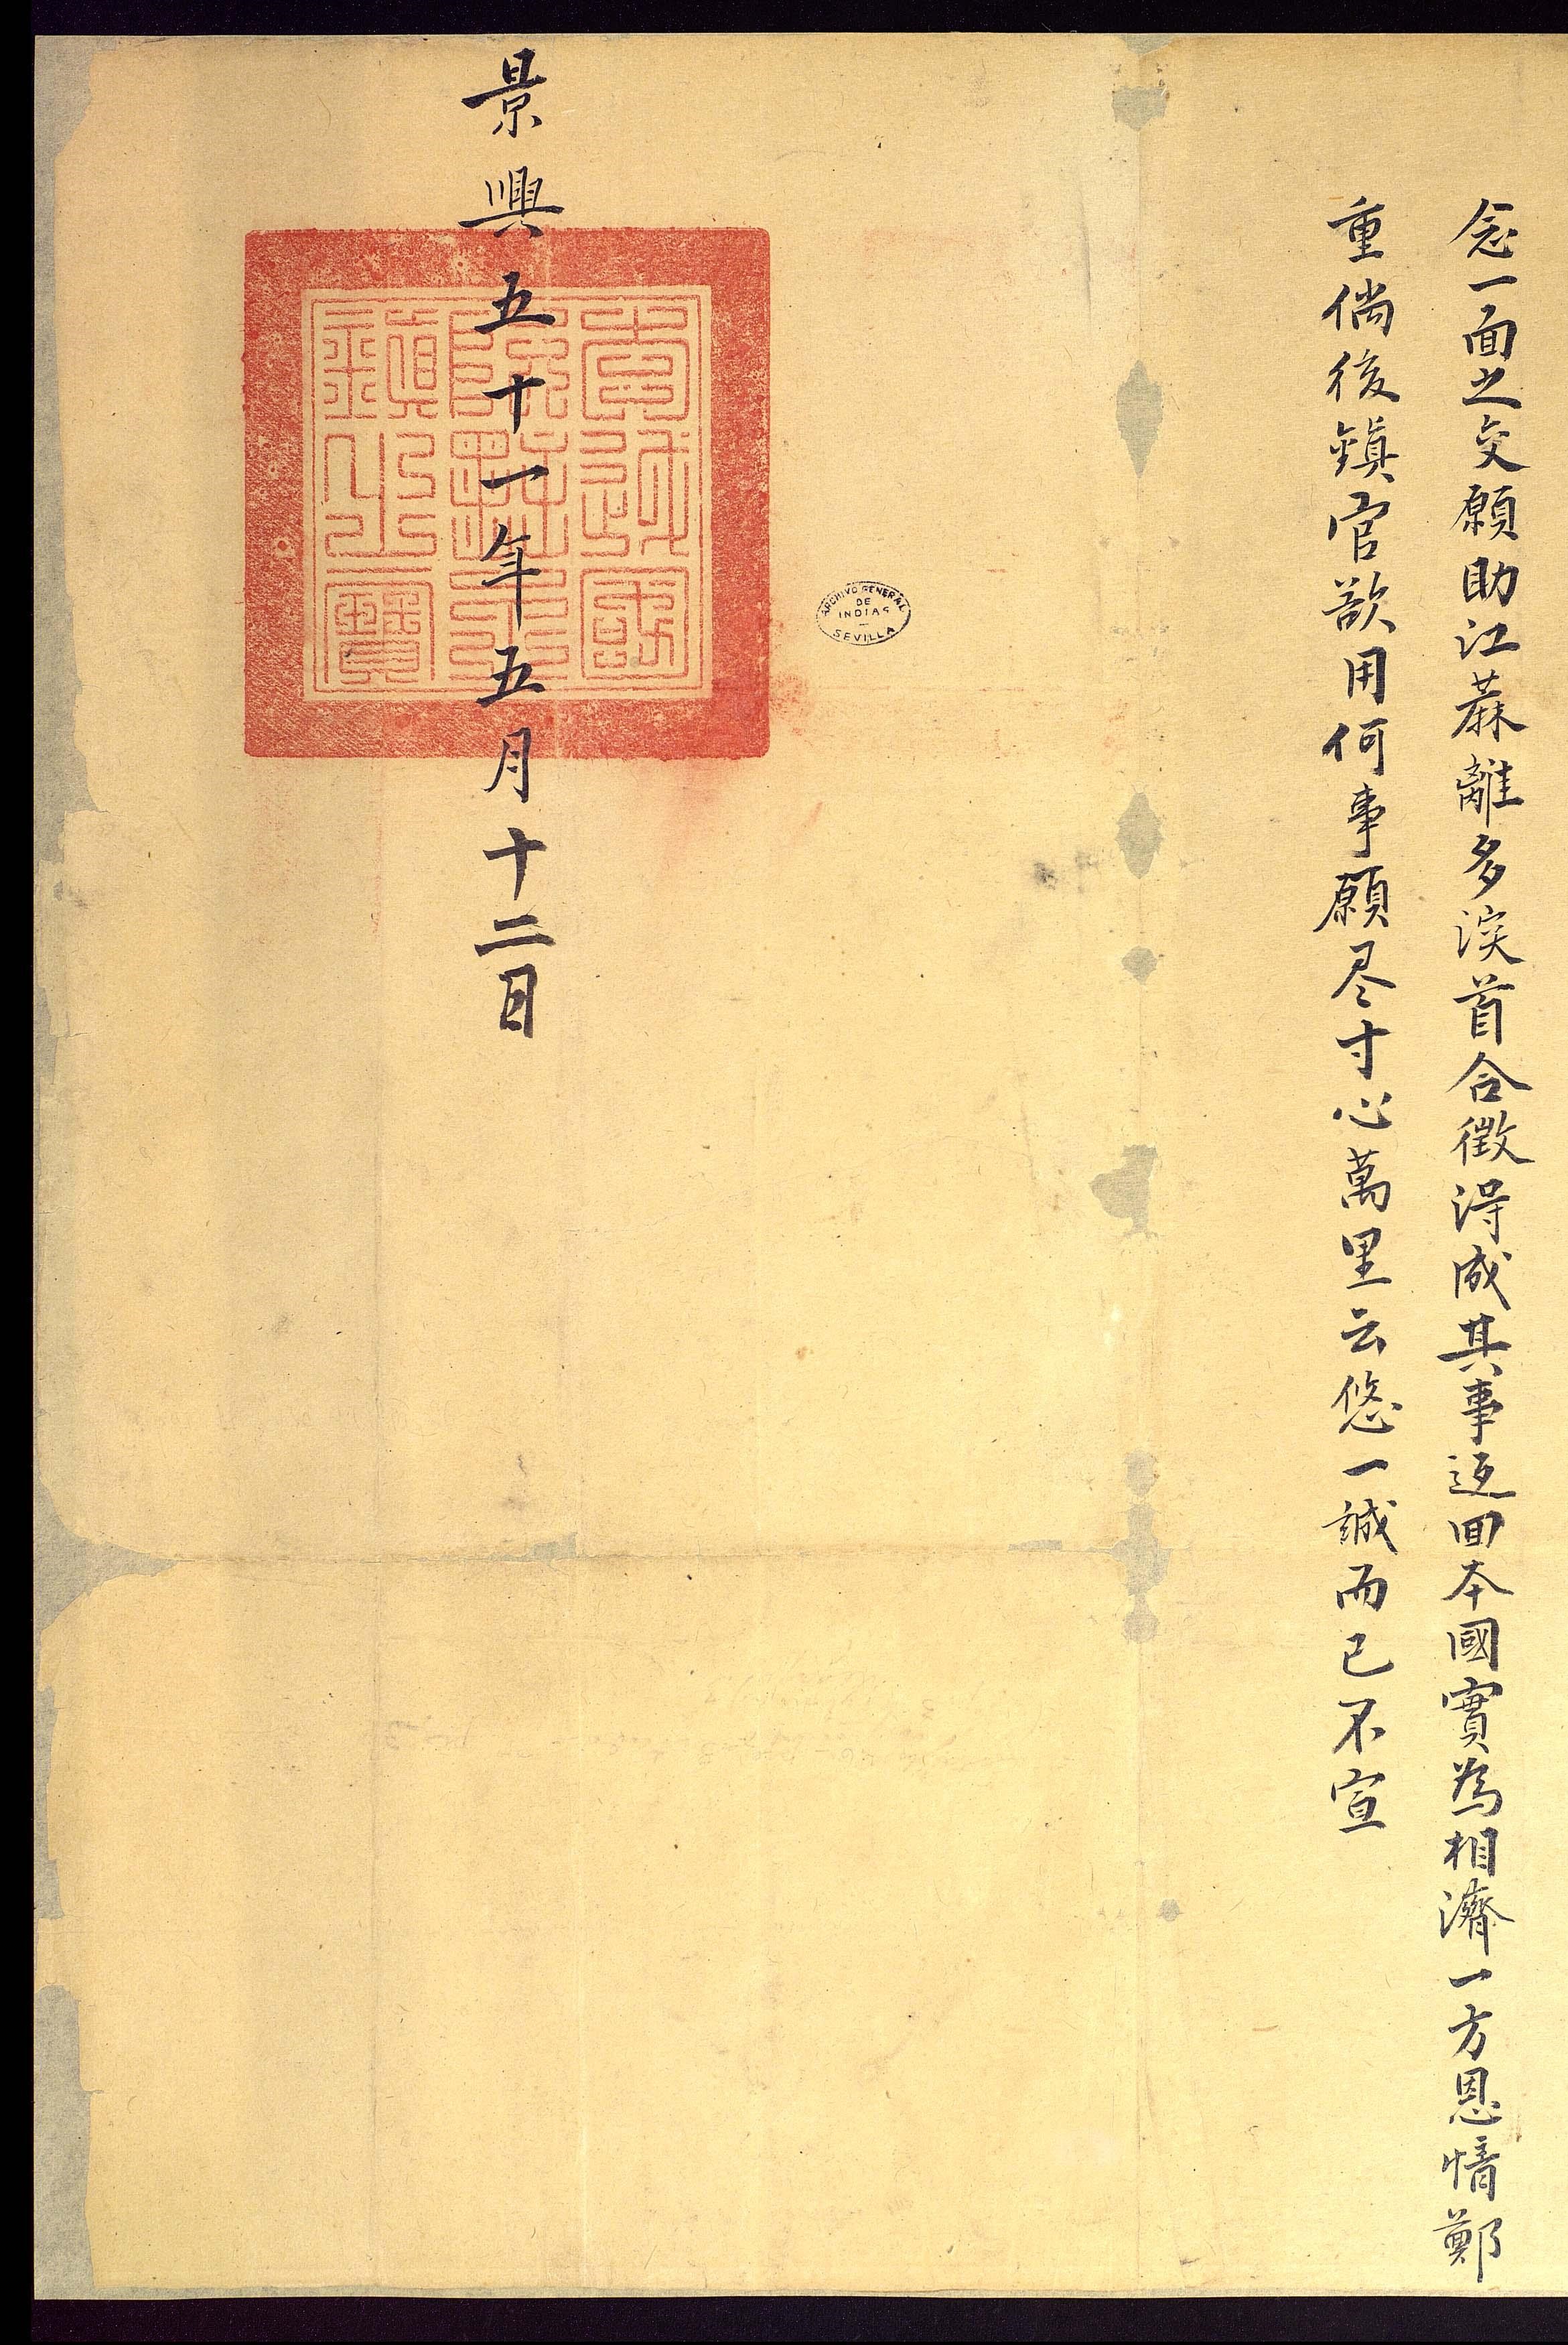 念一面之交願助江蔴離多淚首合徵淂成其事返回本國實為相濟一方恩情鄭
重倘後鎮官欲用何事願尽寸心萬里云悠一誠而已不宣
景興五十一年五月十二日
ARCHIVO GENERAL
DE
INDIAS
SEVILLA